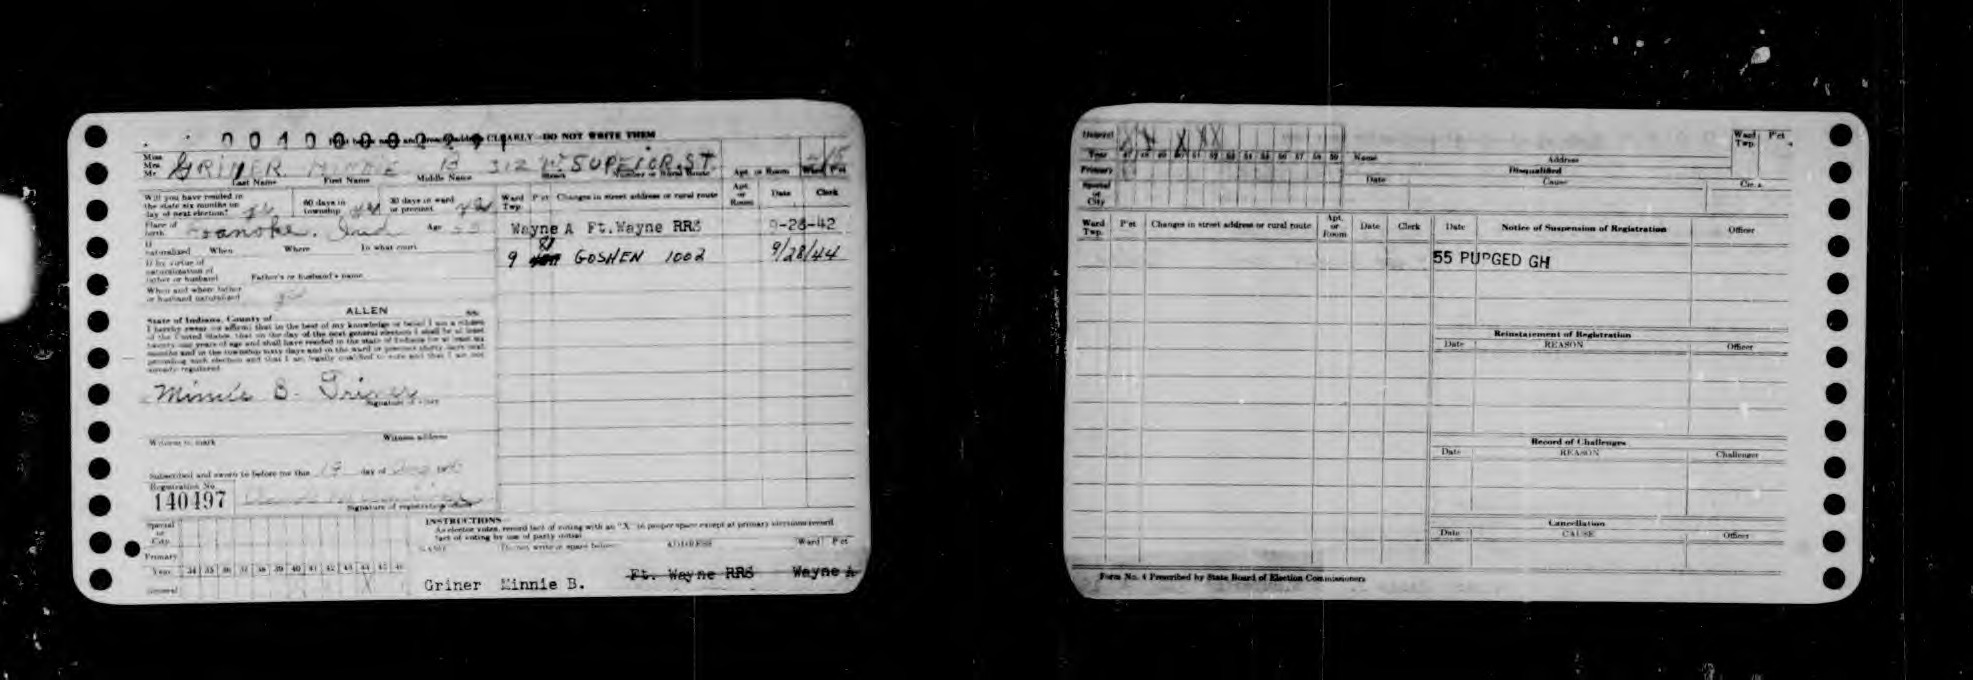 CLEARLY—DO NOT WRITE THEM
Miss
Mrs.
Mr. GRINER MINNIE B 312 W SUPERIOR ST 15
Last Name First Name Middle Name Number or Rural Route Apt. or Room Ward Pct
Will you have resided in
the state six months on
day of next election? yes 60 days in
township yes 30 days in ward
or precinct yes
Ward
Twp. P'ct Changes in street address or rural route Apt.
or
Room Date Clerk
Place of
birth Roanoke, Ind Age
Wayne A Ft.Wayne RR8 9-28-42
If
naturalized When Where In what court
9 GOSHEN 1002 9/28/44
If by virtue of
naturalization of
father or husband Father's or husband's name
When and where father
or husband naturalized
State of Indiana, County of ALLEN SS:
I hereby swear (or affirm) that to the best of my knowledge or belief I am a citizen
of the United States, that on the day of the next general election I shall be at least
twenty-one years of age and shall have resided in the state of Indiana for at least six
months and in the township sixty days and in the ward or precinct thirty days next
preceding such election and that I am legally qualified to vote and that I am not
already registered.
Minnie B. Griner
Signature of voter
Witness to mark Witness address
Subscribed and sworn to before me this 19 day of Aug 1940
Registration No.
140497
Signature of registration officer
INSTRUCTIONS
As elector votes, record fact of voting with an "X" in proper space except at primary elections record
fact of voting by use of party initial
Special
or
City
NAME Do not write in space below ADDRESS Ward P'ct
Primary
Year 34 35 36 37 38 39 40 41 42 43 44 45 46
General
Griner Minnie B. Ft. Wayne RR8 Wayne A
General X X X X X
Year 47 48 49 50 51 52 53 54 55 56 57 58 59
Primary
Special
or
City
Name Address Ward
Twp. P'ct
Disqualified
Date Cause
Ward
Twp. P'ct Changes in street address or rural route Apt.
or
Room Date Clerk
Date Notice of Suspension of Registration Officer
55 PURGED GH
Reinstatement of Registration
Date REASON Officer
Record of Challenges
Date REASON Challenger
Cancellation
Date CAUSE Officer
Form No. 4 Prescribed by State Board of Election Commissioners